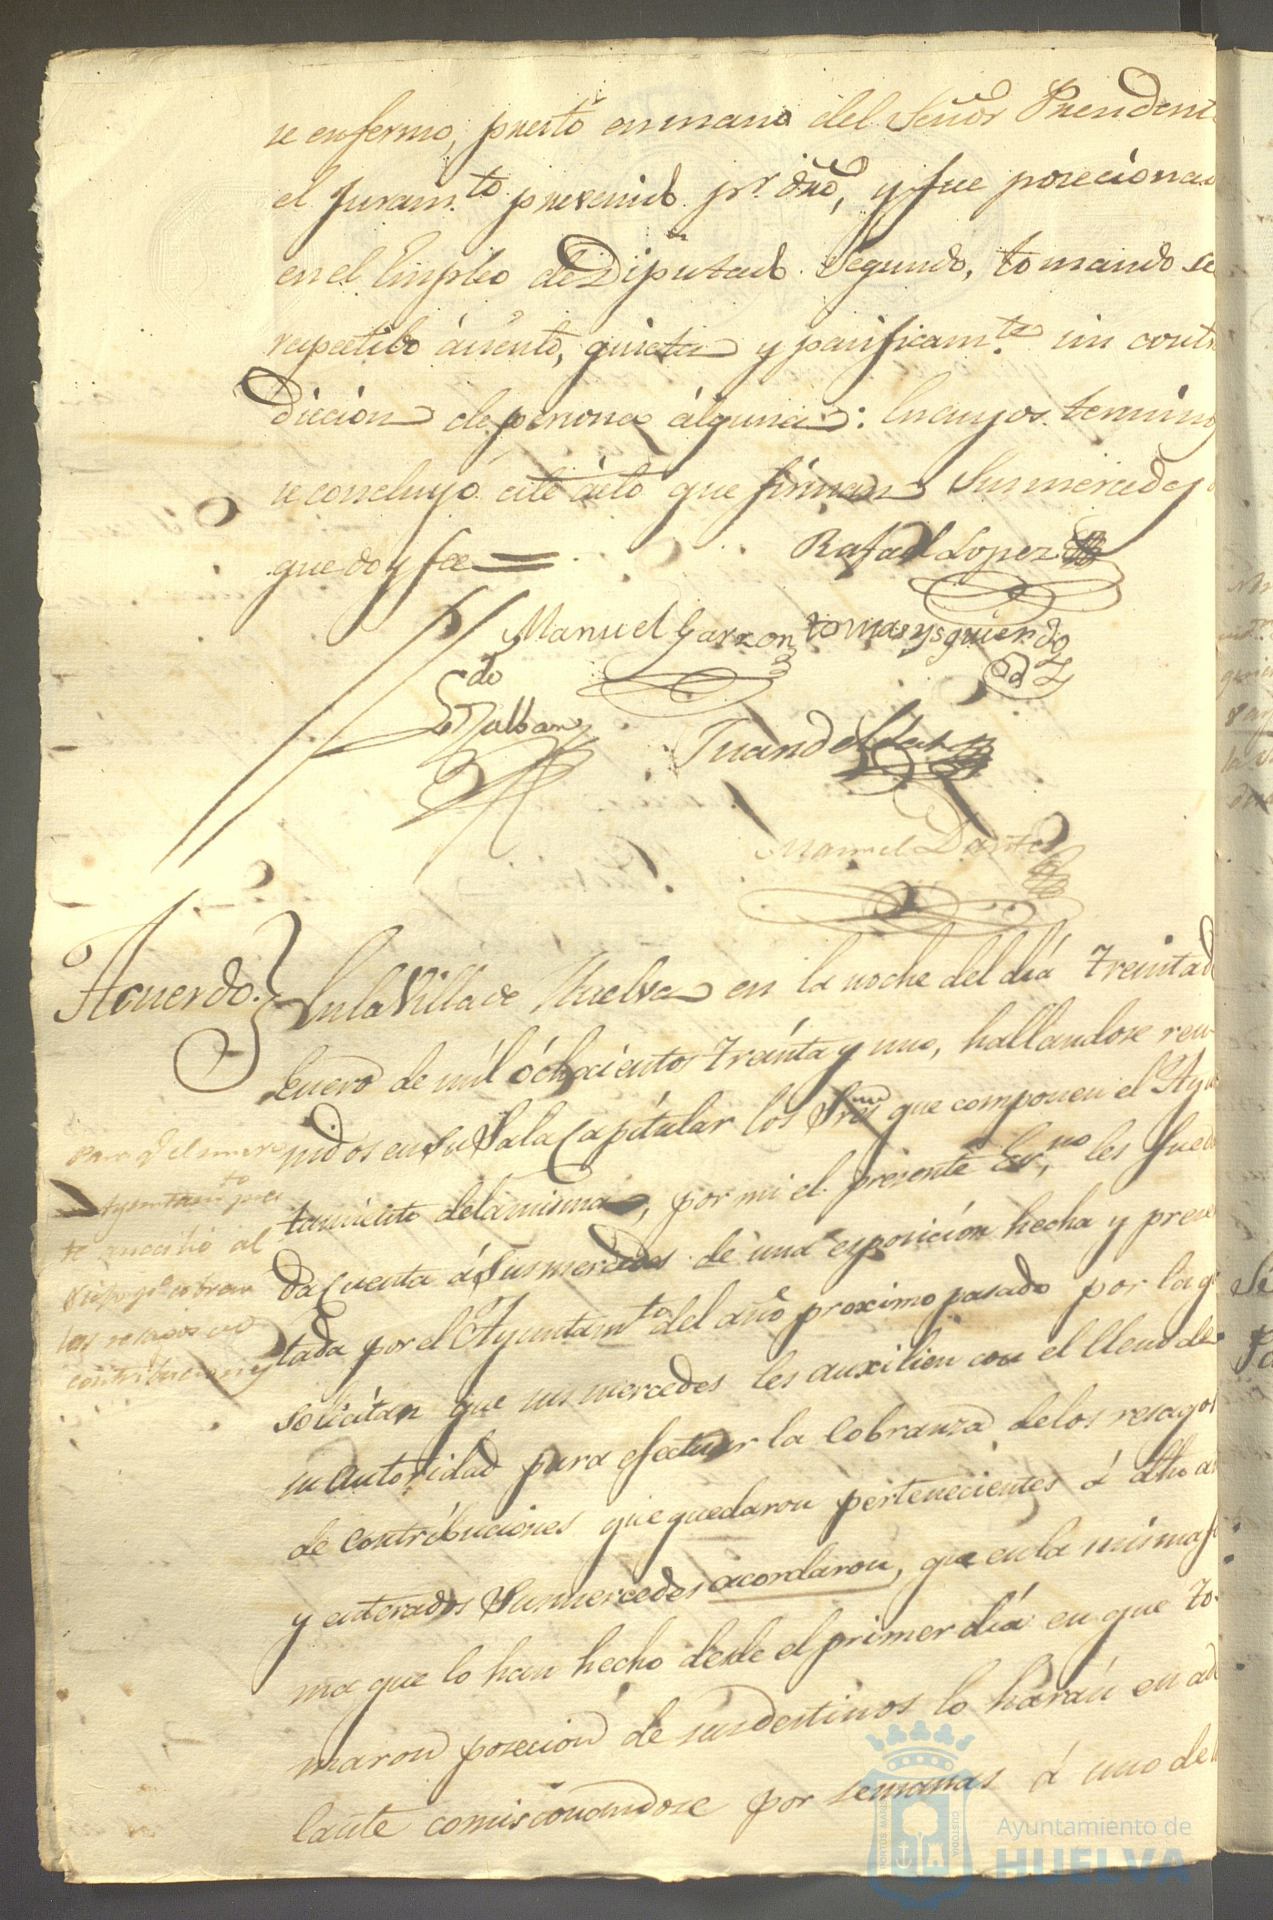 se enfermo, puesto en mano del Señor Presidente
el Juram.to prevenido p.r dro, y fue posecionado
en el Empleo de Diputado Segundo, tomando su
respectibo ásiento, quieta y pasificam.te sin contra
dicion de persona álguna: En cuyos termin
se concluyó este ácto que firman Sus mercedes
que doy fee =
Rafael Lopez
Manuel Garzon tomas ysquierdo
Manuel
Acuerdo. En la Villa de Huelva en la noche del día treinta de
Enero de mil ochocientos treinta y uno, hallandose reu
nidos en su Sala Capitular los Sres que componen el Ayun
tamiento de la misma, por mi el presente Es.no les fue
da Cuenta á Sus mercedes de una exposición hecha y presen
tada por el Ayuntam.to del año proximo pasado por la q.e
solicitan que sus mercedes les auxilien con el lleno de
su autoridad para efectuar la cobranza de los resagos
de contribuciones que quedaron pertenecientes á dho a
y enterados Sus mercedes acordaron, que en la misma for
ma que lo han hecho desde el primer día en que to-
maron posecion de sus destinos lo harán en ade
lante comisionandose por semanas á uno de
Para q.e el nuevo
Ayuntam.to pres
te auxilio al
viejo p.a cobrar
los resagos de
contribuciones
Ayuntamiento de
HUELVA